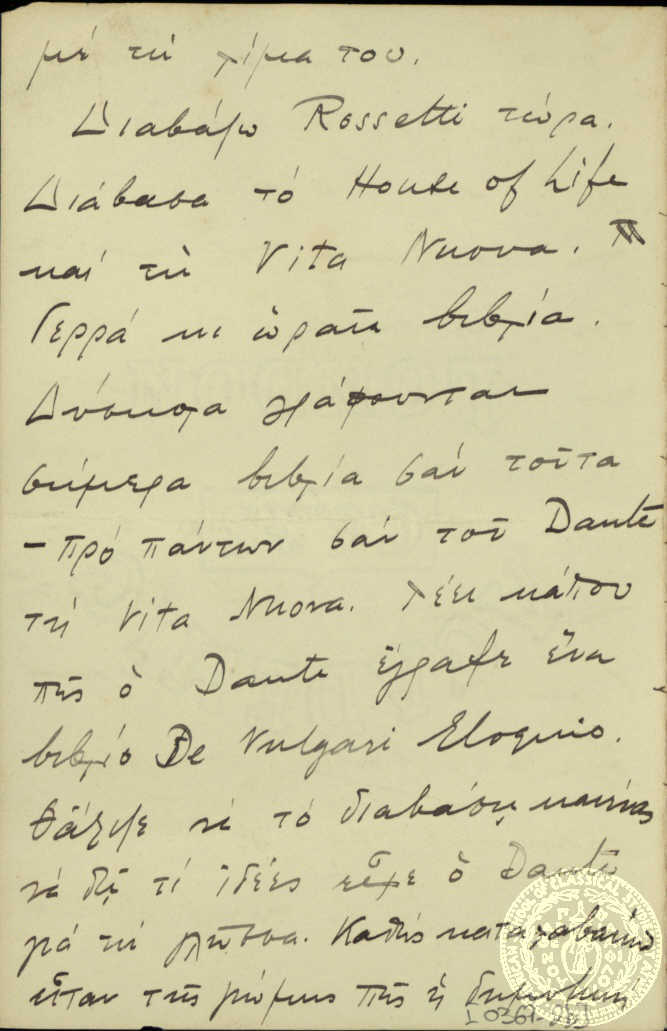 μέ τὴ
του.
Διαβάζω Rossetti τώρα.
Διάβασα τό House of Life
καί τὴ Vita Nuova.
Γερρά κι ὡραῖα βιβλία.
Δύσκολα γράφουνται
σήμερα βιβλία σάν τοῦτα
– πρό πάντων σάν τοῦ Dante
τή Vita Nuova. Λέει κάπου
πῶς ὁ Dante ἔγραψε ἕνα
βιβλίο De Vulgari Eloquio.
Θἄξιζε νά τό διαβάσῃ κανένας
νά δῇ τί ἰδέες εἶχε ὁ Dante
γιά τή γλῶσσα. Καθώς καταλαβαίνω
εἶταν τῆς γνώμης πῶς ἡ δημοτική
L 0367-257